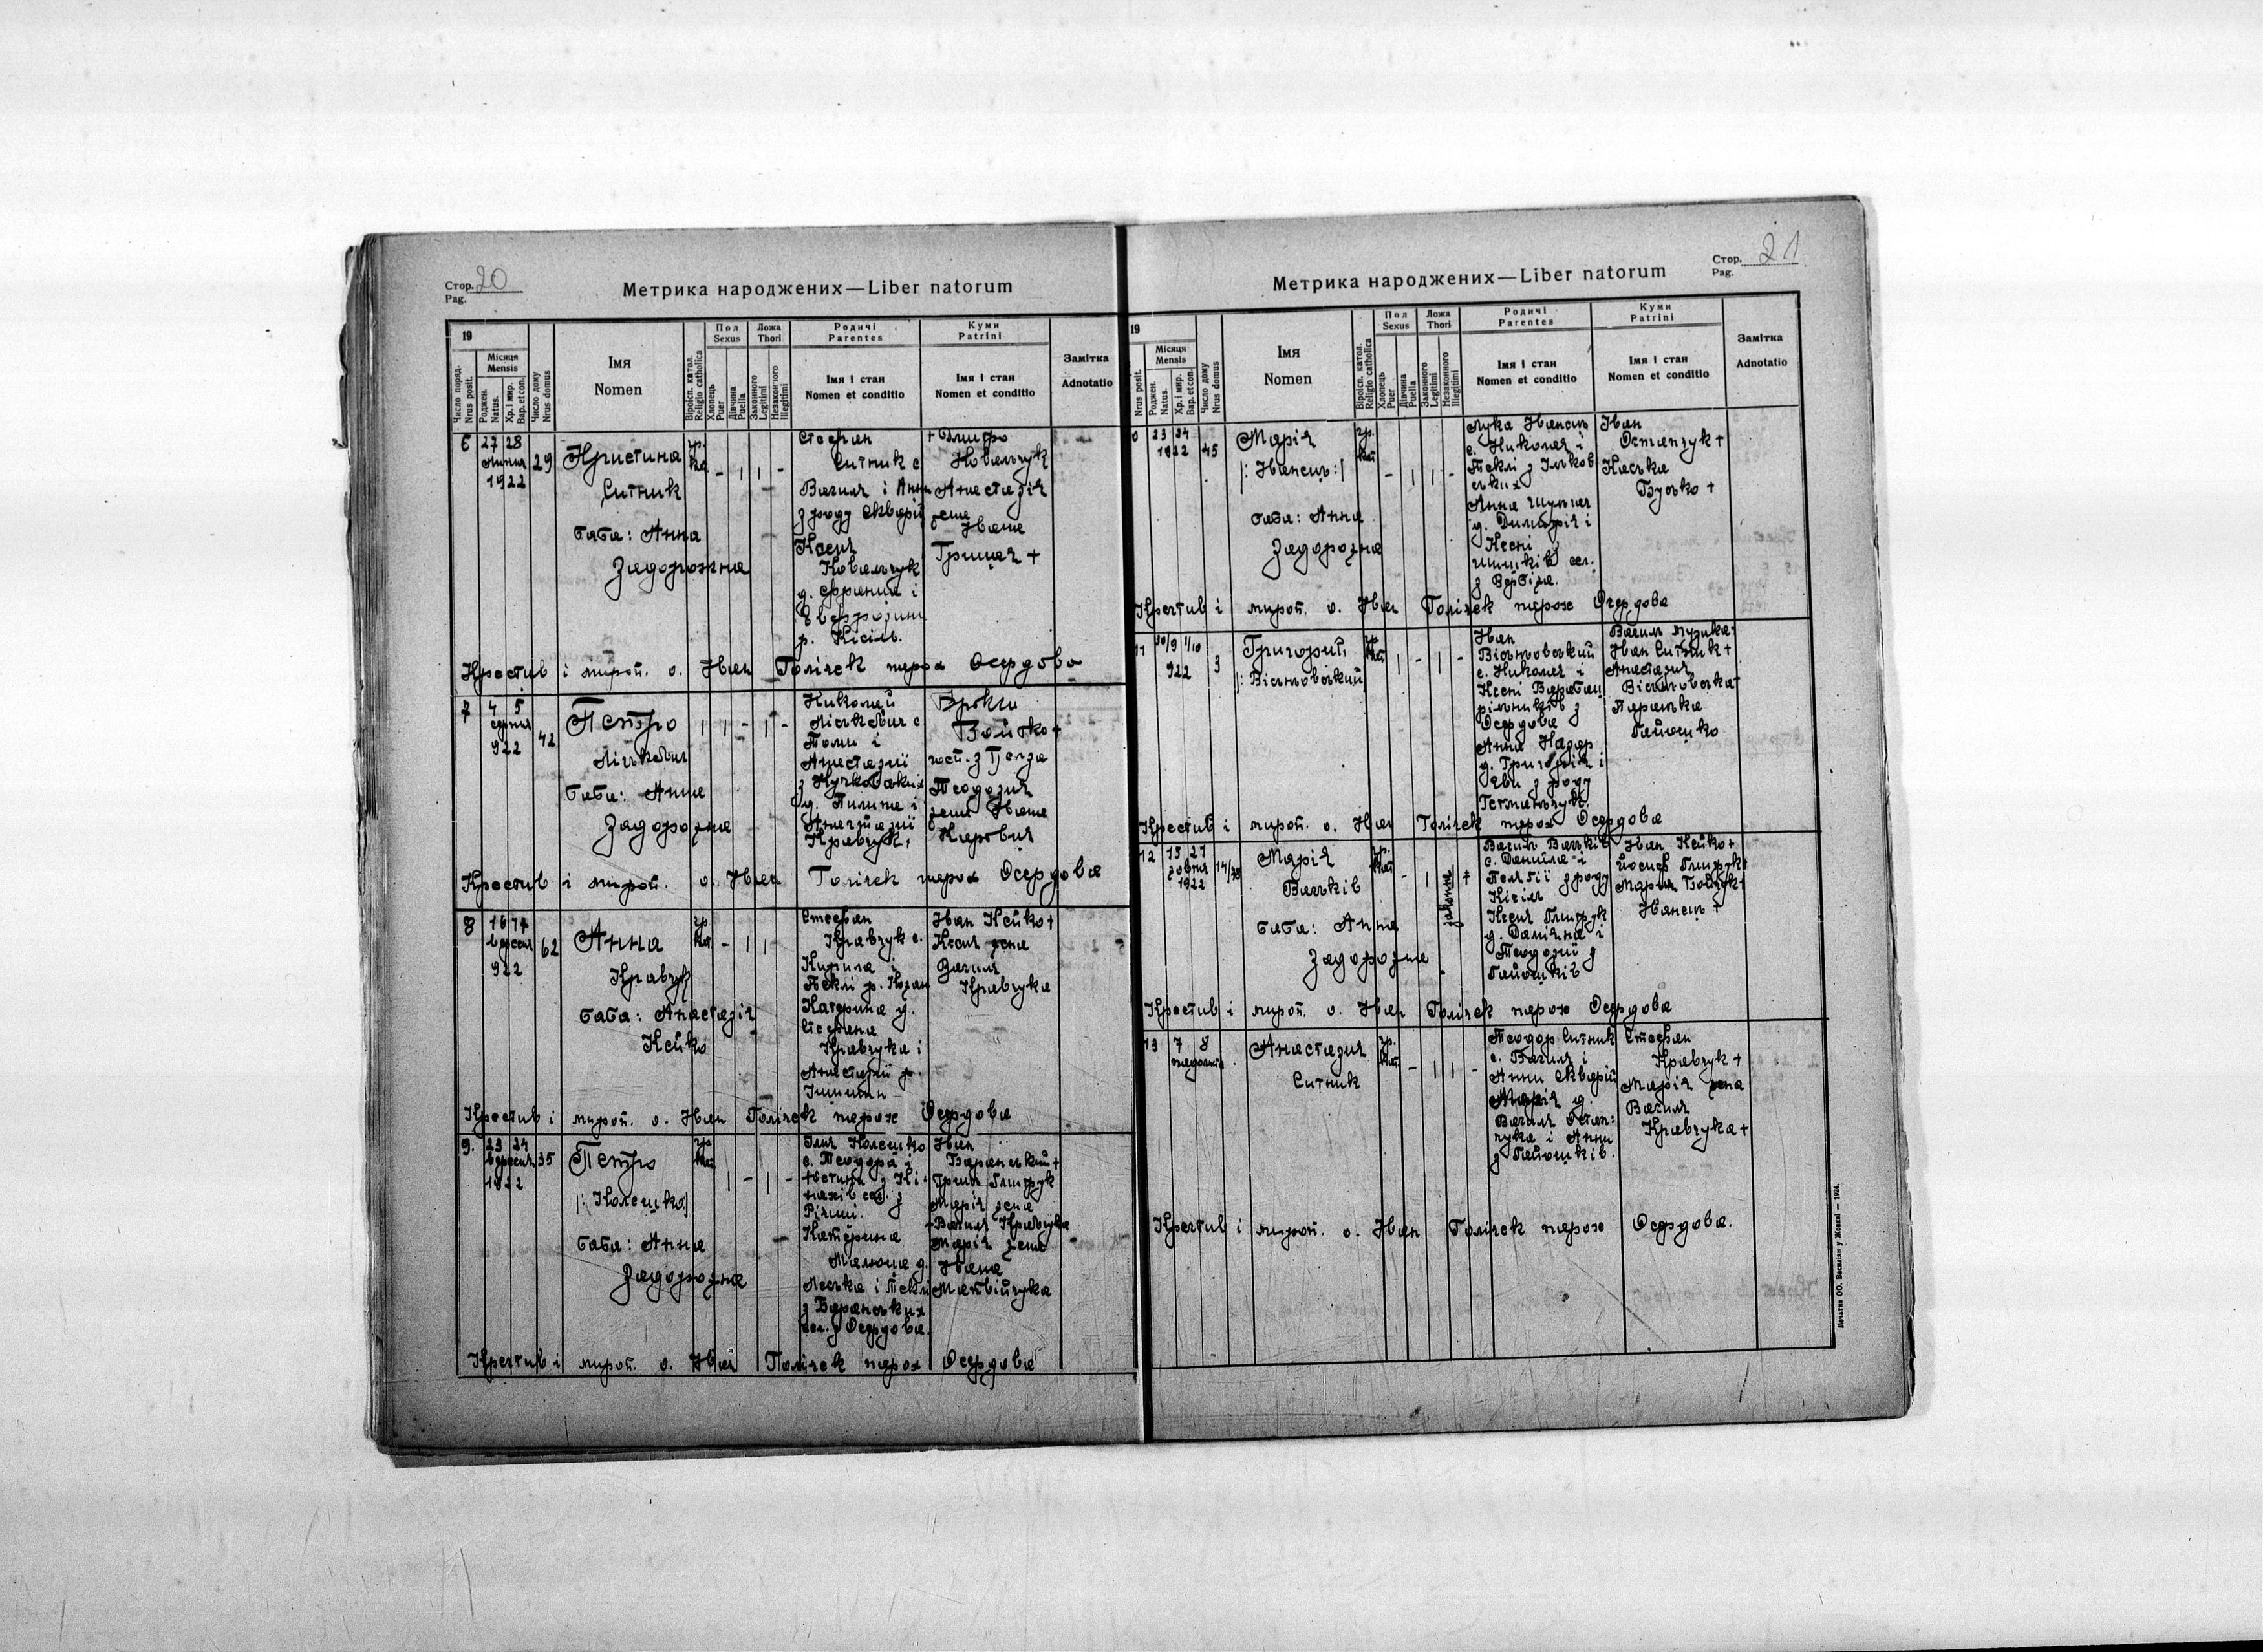 Стор. 20
Pag.
Метрика народжених—Liber natorum
19
Місяця
Mensis
Число поряд.
Nrus posit.
Роджен.
Natus.
Хр. і мир.
Bap. et con.
Число дому
Nrus domus
Імя
Nomen
Віроісп. катол.
Religio catholica
Пол
Sexus
Хлопець
Puer
Дівчина
Puella
Ложа
Thori
Законного
Legitimi
Незаконного
Illegitimi
Родичі
Parentes
Імя і стан
Nomen et conditio
Куми
Patrini
Імя і стан
Nomen et conditio
Замітка
Adnotatio
6 27 28
липня
1922
29
Христина
Ситник
баба: Анна
Задорожна
гр.
кат
Стефан
Ситник с
Василя і Анни
з роду Скварій
Ксеня
Ковальчук
д.
р. Кісіль.
+ Дмитро
Ковальчук
Анастазія
жена
Івана
Грицая +
Крестив і мироп. о. Іван Голічек парох Осердова
7 4 5
серпня
922
42
Петро
баба: Анна
Задорожна
Николай
с
Томи і
Анастазиї
д. Пилипа і
Анастазиї
Кравчук,
Войтко +
Теодозия
жена Івана
Крестив і мироп. о. Іван Голічек парох Осердова
8 16 17
вересня
922
62
Анна
Кравчук
баба: Анастазія
Кейко
гр
кат
Стефан
Кравчук с.
Кирила і
Теклі р. Козак
Катерина д.
Стефана
Кравчука і
Анастазиї р.
Іван Кейко +
Ксеня жена
Василя
Кравчука
Крестив і мироп. о. Іван Голічек парох Осердова
9. 23 24
вересня
1922
35
Петро
/: Колешко:/
баба: Анна
Задорожна
гр
кат
Ілия Колешко
с. Теодора і
Катерина
Малюша д.
Леська і Теклі
з Баранських
сел. з Осердова.
Іван
Баранський +
Гриць Дмитрук
Марія жена
+ Василя Кравчука
Марія жена
Івана
Матвійчука
Крестив і мироп. о. Іван Голічек парох Осердова
Стор. 21
Pag.
Метрика народжених—Liber natorum
19
Місяця
Mensis
Nrus posit.
Роджен.
Natus.
Хр. і мир.
Bap. et con.
Число дому
Nrus domus
Імя
Nomen
Віроісп. катол.
Religio catholica
Пол
Sexus
Хлопець
Puer
Дівчина
Puella
Ложа
Thori
Законного
Legitimi
Незаконного
Illegitimi
Родичі
Parentes
Імя і стан
Nomen et conditio
Куми
Patrini
Імя і стан
Nomen et conditio
Замітка
Adnotatio
0 23 24
1922
45
Марія
/: Іванець:/
баба: Анна
Задорожна
гр.
кат
Лука Іванець
с. Николая і
Теклі з Ільков
ських
Анна
д. Димитрія і
Ксені
сел.
з Вербіжа.
Іван
Остапчук +
Каська
Бусько +
Крестив і мироп. о. Іван Голічек парох Осердова
11 30/9 1/10
922
3
Григорий
/: Вісьньовський
гр.
кат
Іван
Вісьньовський
с. Николая і
Ксені Варабаш
рільників з
Осердова
Анна
д. Григорія і
Еви з роду
Гетманчук.
Василь Музика +
Іван Ситник +
Анастазия
Вісьньовська +
Параська
Гайошко
Крестив і мироп. о. Іван Голічек парох Осердова
12 13 21
жовтня
1922
14/78
Марія
Васьків
баба: Анна
Задорожна
гр.
кат
законне
Василь Васьків
с. Данила і
Пелягії з роду
Кісіль
Ксеня Дмитрук
д.
Теодозиї з
Гайошків
Іван Кейко +
Йосиф Дмитрук +
Мария Бойчук +
Іванець +
Крестив і мироп. о. Іван Голічек парох Осердова
13 7 8
падолиста
Анастазия
Ситник
гр.
кат
Теодор Ситник
с. Василя і
Анни Скварій
Марія д.
Василя Остап:
чука і Анни
з Гайошків.
Стефан
Кравчук +
Марія жена
Василя
Кравчука +
Крестив і мироп. о. Іван Голічек парох Осердова.
Печатня ОО. Василіян у Жовкві — 1924.